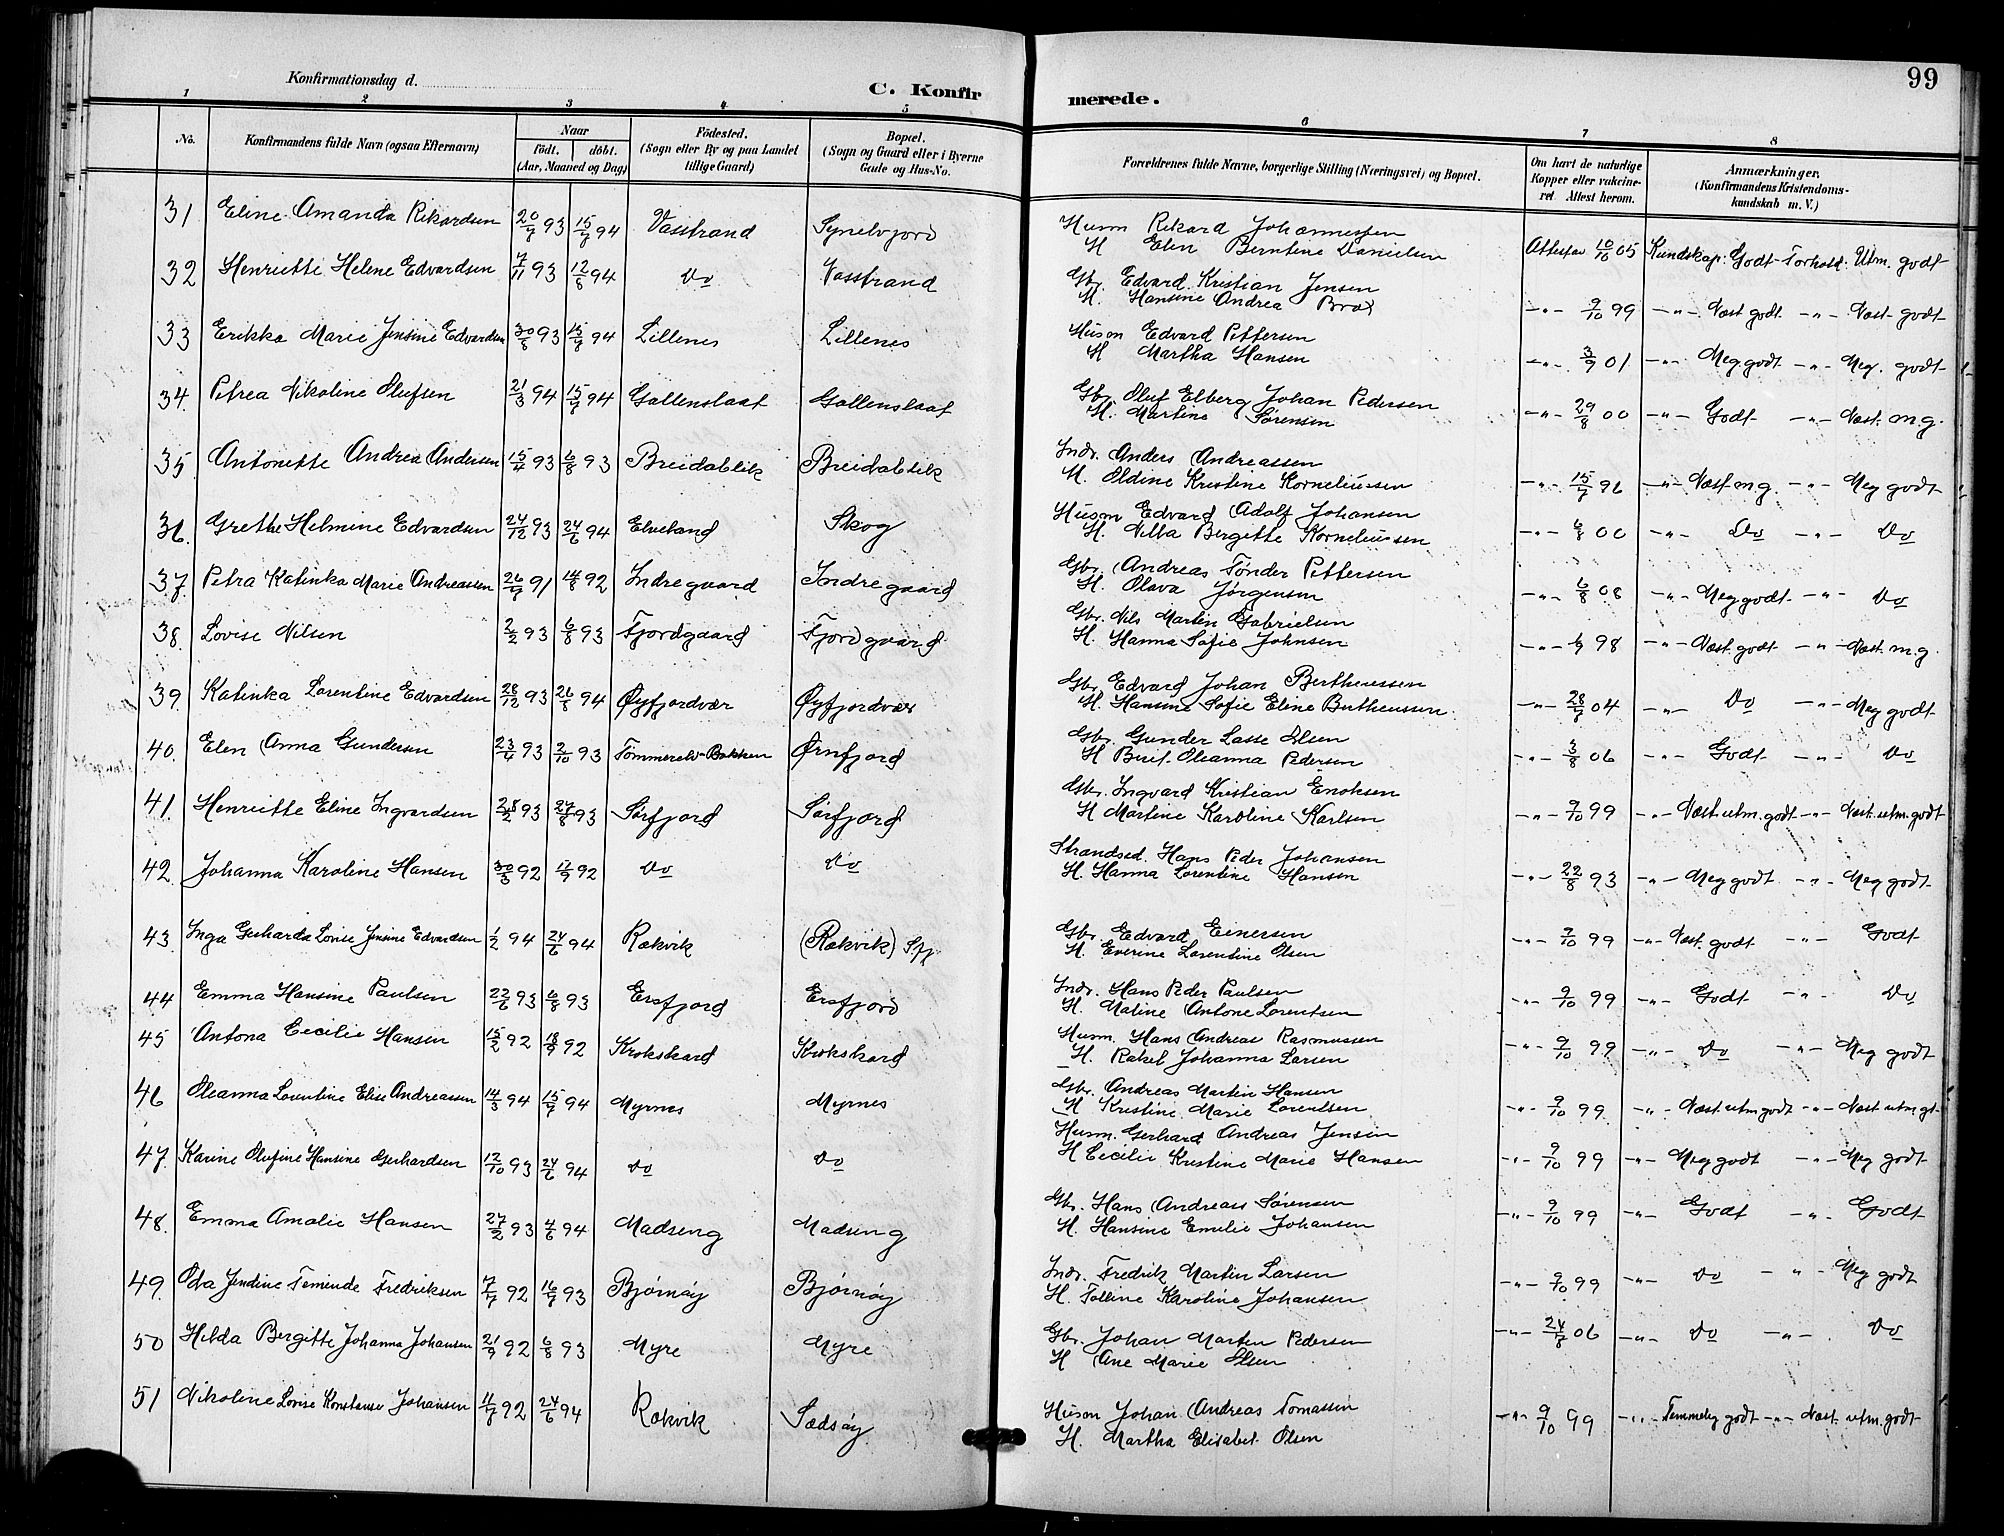 99
Konfirmationsdag d.
C. Konfirmerede.
1 2 3 4 5 6 7 8
No. Konfirmandens fulde Navn (ogsaa Efternavn) Naar født. døbt. (Aar, Maaned og Dag) Födested. (Sogn eller By og paa Landet tillige Gaard) Bopæl. (Sogn og Gaard eller i Byerne Gade og Hus-No. Forældrenes fulde Navne, borgerlige Stilling (Næringsvei) og Bopæl. Om havt de naturlige Kopper eller vakcineret. Attest herom. Anmærkninger. (Konfirmandens Kristendomskundskab m. V.)
31 Eline Amanda Rikardsen 20/7 93 15/7 94 Vasstrand Husm Rikard Johannessen
H Elen Berntine Danielsen Attester 10/10 05 Kundskap: Godt - Forhold: Utm. godt
32 Henriette Helene Edvardsen 7/11 93 12/8 94 Do Vasstrand Gbr. Edvard Kristian Jensen
H. Hansine Andrea Brox -"- 9/10 99 -"- Næst godt -"- Næst godt
33 Erikka Marie Jensine Edvardsen 30/8 93 15/7 94 Lillenes Lillenes Husm Edvard Pettersen
H Martha Hansen -"- 3/9 01 -"- Meg godt -"- Meg. godt
34. Petrea Nikoline Olufsen 21/3 94 15/7 94 Gallenslaat Gallenslaat Gbr. Oluf Elberg Johan Pedersen
H. Martine Sørensen -"- 29/8 00 -"- Godt -"- Næst m.g.
35 Antonette Andrea Andersen 15/4 93 6/8 93 Breidablik Breidablik Indr. Anders Andreassen
H. Oldine Kristine Korneliussen -"- 15/7 96 -"- Næst m g. -"- Meg godt
36 Grethe Helmine Edvardsen 24/12 93 24/6 94 Elveland Skog Husm Edvard Adolf Johansen
H. Bergitte Korneliussen -"- 6/8 00 -"- Do -"- Do
37. Petra Katinka Marie Andreassen 26/9 91 14/8 92 Indregaard Indregaard Gbr. Andreas Tønder Pettersen
H. Olava Jørgensen -"- 6/8 08 -"- Meg godt -"- Do
38. Lovise Nilsen 2/2 93 6/8 93 Fjordgaard Fjordgaard Gbr. Nils Martin Gabrielsen
H. Hanna Sofie Johnsen -"- 98 -"- Næst godt -"- Næst m.g
39 Katinka Lorentine Edvardsen 28/12 93 26/8 94 Øyfjordvær Øyfjordvær Gbr. Edvard Johan Bertheussen
H. Hansine Sofie Eline Bertheussen -"- 28/7 04 -"- Do -"- Meg godt
40. Elen Anna Gundersen 23/4 93 2/10 93 Tømmerelv-Bakken Ørnfjord Gbr. Gunder Lasse Olsen
H Berit Oleanna Pedersen -"- 3/8 06 -"- Godt -"- Do
41. Henriette Eline Ingvardsen 28/2 93 27/8 93 Sørfjord Sørfjord Gbr. Ingvard Kristian Enoksen
H Martine Karoline Karlsen -"- 9/10 99 -"- Næst utm. godt -"- Næst. utm. godt
42 Johanna Karoline Hansen 30/3 92 17/7 92 Do Do Strandsed. Hans Peder Johansen
H. Hanna Lorentine Hansen -"- 22/8 93 -"- Meg godt -"- Meg godt
43. Inga Gerharda Lovise Jensine Edvardsen 1/2 94 24/6 94 Rækvik (Rækvik) Gbr. Edvard Einersen
H. Everine Lorentine Olsen -"- 9/10 99 -"- Næst. godt -"- Godt
44 Emma Hansine Paulsen 22/6 93 6/8 93 Ersfjord Ersfjord Indr. Hans Peder Paulsen
H. Maline Antone Lorentsen -"- 9/10 99 -"- Godt -"- Do
45 Antona Cecilie Hansen 15/2 92 18/9 92 Krokskard Krokskard Husm. Hans Andreas Rasmussen
H. Rakel Johanna Larsen -"- 9/10 99 -"- Do -"- Meg godt
46 Oleanna Lorentine Elise Andreassen 14/3 94 15/7 94 Myrnes Myrnes Gbr. Andreas Martin Hansen
H Kristine Marie Lorentsen -"- 9/10 99 -"- Næst utm godt -"- Næst utm gt
47. Karine Olufine Hansine Gerhardsen 12/10 93 24/6 94 Do Do Husm. Gerhard Andreas Jensen
H Cecilie Kristine Marie Hansen -"- 9/10 99 -"- Meg godt -"- Meg godt
48. Emma Amalie Hansen 27/2 93 4/6 94 Madseng Madseng Gbr. Hans Andreas Sørensen
H. Hansine Emelie Johansen -"- 9/10 99 -"- Godt -"- Godt
49. Oda Jendine Fredriksen 7/7 92 16/7 93 Bjørnøy Bjørnøy Indr. Fredrik Martin Larsen
H. Karoline Johansen -"- 9/10 99 -"- Do -"- Meg godt
50 Hilda Bergitte Johanna Johansen 21/9 92 6/8 93 Myre Myre Gbr. Johan Marten Pedersen
H Ane Marie Olsen -"- 24/7 06 -"- Do -"- Do
51 Nikoline Lovise Konstanse Johansen 11/7 92 24/6 94 Rækvik Husm Johan Andreas Tomassen
H. Martha Elisabet Olsen -"- 9/10 99 -"- Temmelig godt -"- Næst utm. godt